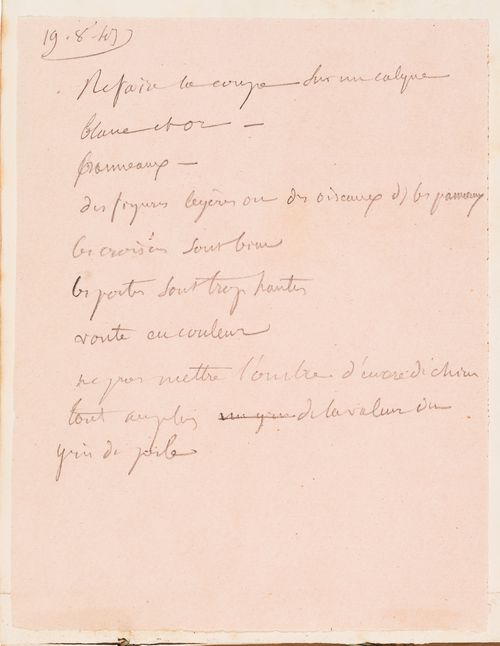 19. 8. 45
Refaire la coupe sur un calque
blanc et or —
panneaux —
des figures legères ou des oiseaux d) les panneaux
les croisées sont bien
les portes sont trop hautes
voute en couleur
ne pas mettre l'ombre d'encre de chine
tout au plus un gris de la valeur du
gris de perle